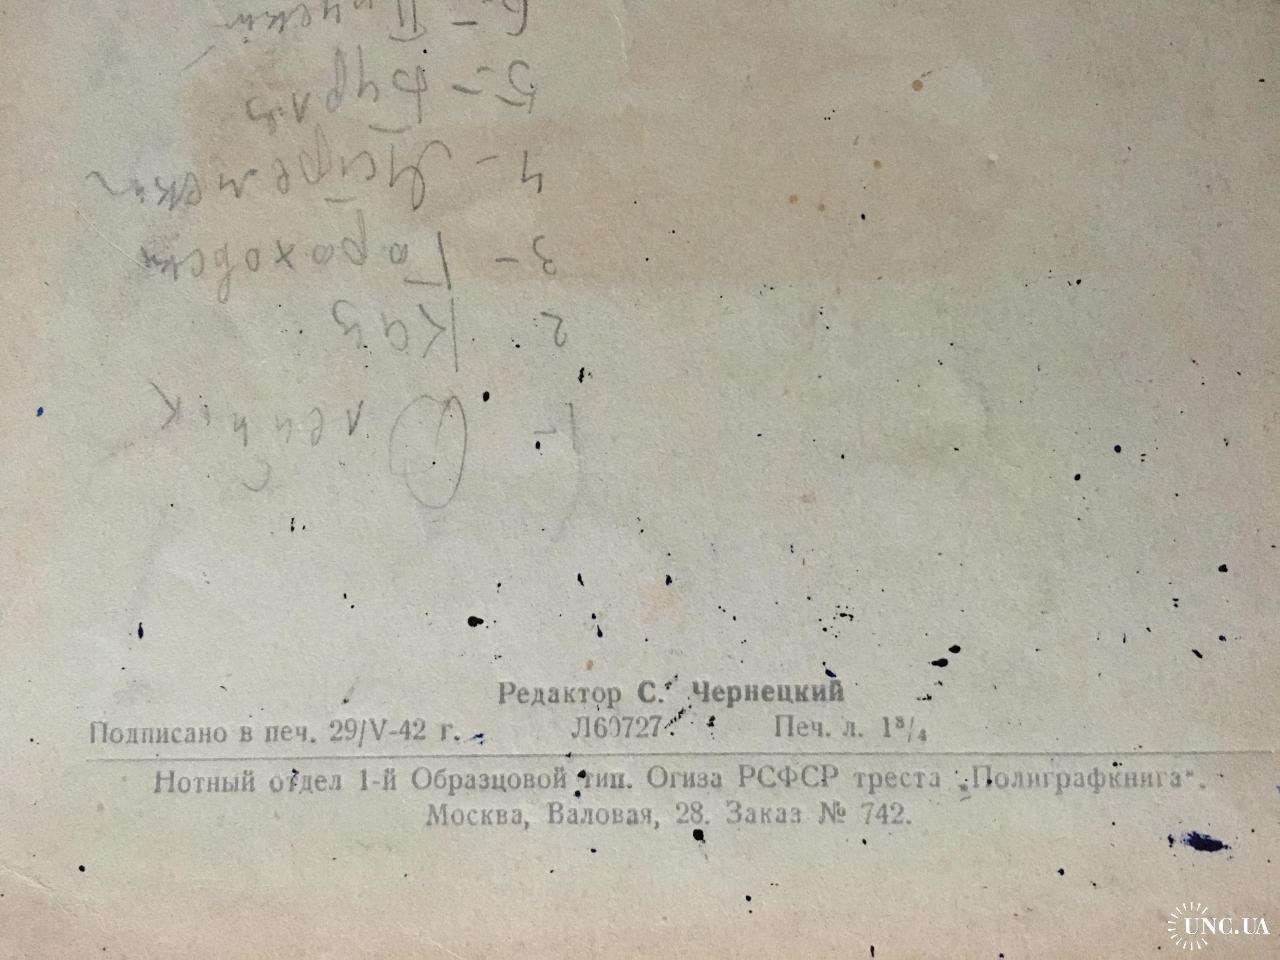 1- Олейник
2 Каз
3- Гороховски
5- Бурлз
Редактор С. Чернецкий
Подписано в печ. 29/V-42 г. Л60727 Печ. л. 1³/₄
Нотный отдел 1-й Образцовой тип. Огиза РСФСР треста „Полиграфкнига“.
Москва, Валовая, 28. Заказ № 742.
UNC.UA